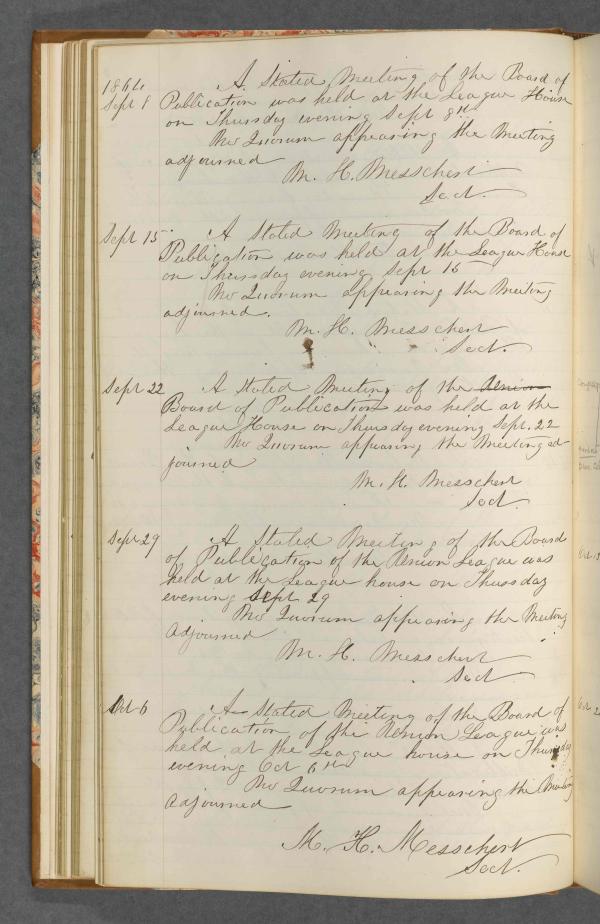 1864
Sept 8
A Stated Meeting of the Board of
Publication was held at the League House
on Thursday evening Sept 8th
No Quorum appearing the Meeting
adjourned
M. H. Messchert
Sect.
Sept 15
A Stated Meeting of the Board of
Publication was held at the League House
on Thursday evening Sept 15
No Quorum appearing the Meeting
adjourned.
M. H. Messchert
Sect.
Sept 22
A Stated Meeting of the Union
Board of Publication was held at the
League House on Thursday evening Sept. 22
No Quorum appearing the Meeting ad
journed
M. H. Messchert
Sect.
Sept 29
A Stated Meeting of the Board
of Publication of the Union League was
held at the League house on Thursday
evening Sept 29
No Quorum appearing the Meeting
adjourned
M. H. Messchert
Sect
Oct 6
A Stated Meeting of the Board of
Publication of the Union League was
held at the League house on Thursday
evening Oct 6th
No Quorum appearing the Meeting
adjourned
M. H. Messchert
Sect.
Oct 13
Oct 2